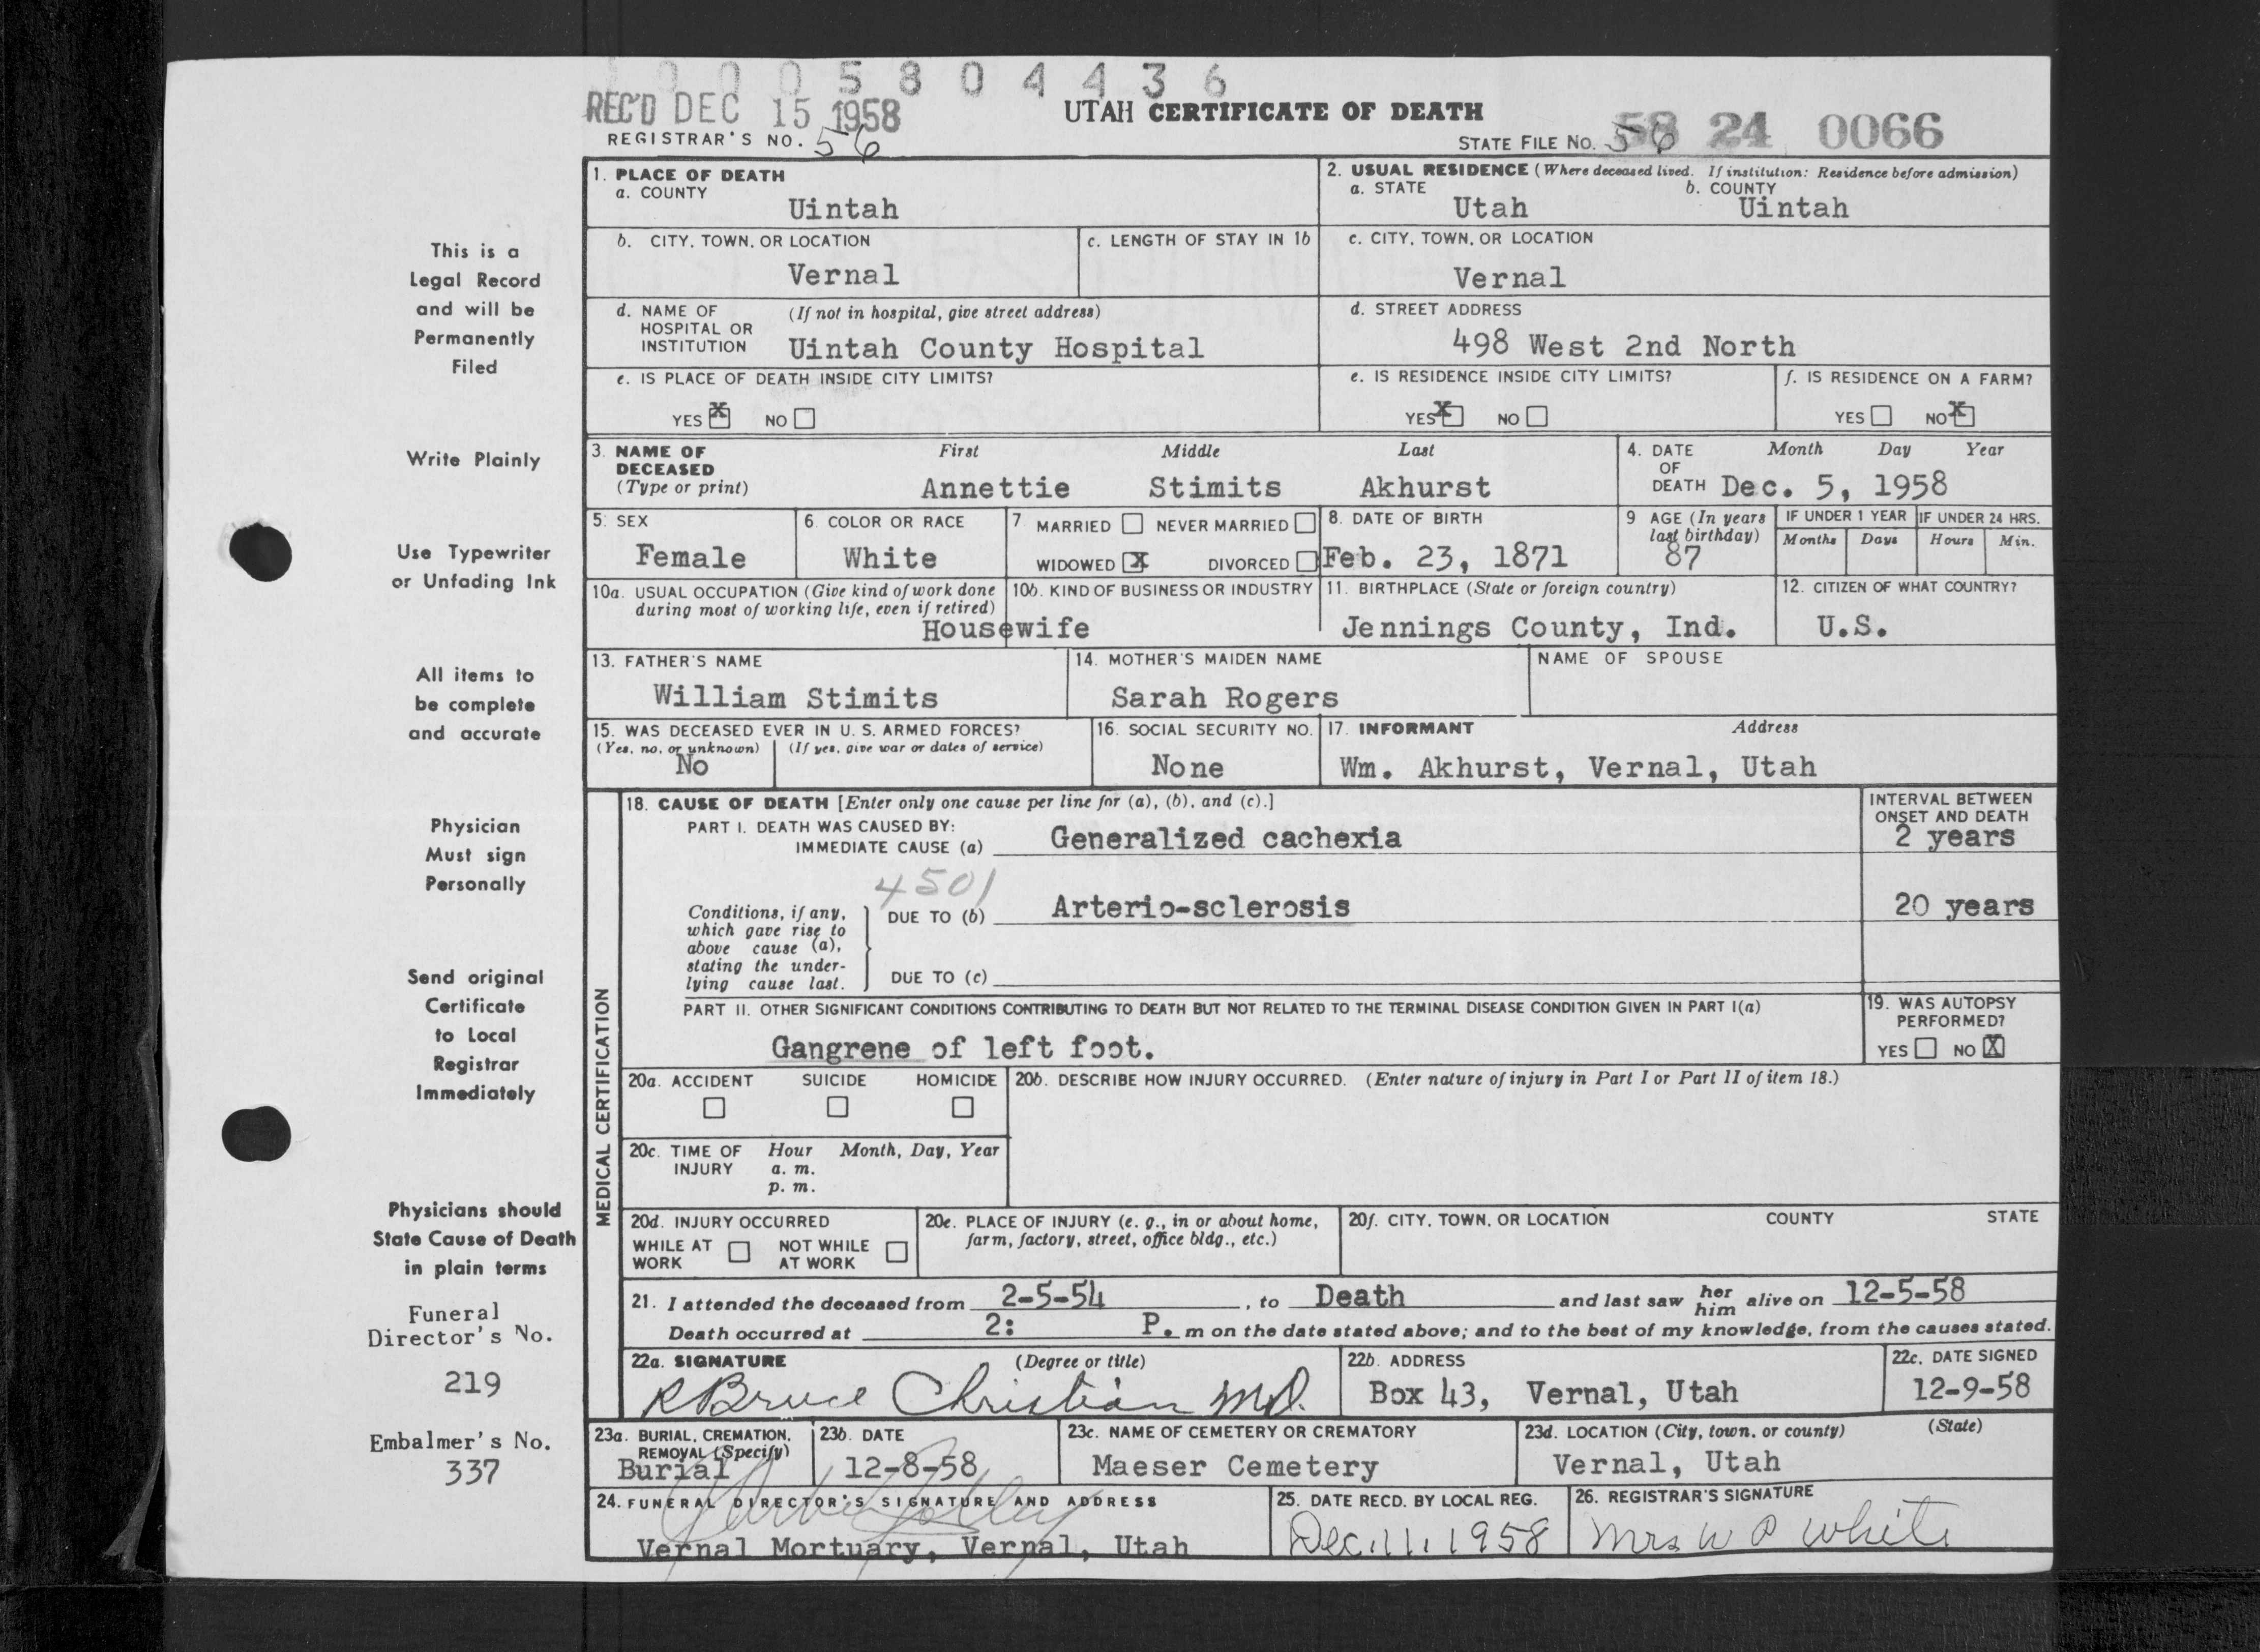 0005804436
REC'D DEC 15 1958
UTAH CERTIFICATE OF DEATH
REGISTRAR'S NO. 56
STATE FILE No. 56 58 24 0066
This is a
Legal Record
and will be
Permanently
Filed
Write Plainly
Use Typewriter
or Unfading Ink
All items to
be complete
and accurate
Physician
Must sign
Personally
Send original
Certificate
to Local
Registrar
Immediately
Physicians should
State Cause of Death
in plain terms
Funeral
Director's No.
219
Embalmer's No.
337
1. PLACE OF DEATH
a. COUNTY
Uintah
2. USUAL RESIDENCE (Where deceased lived. If institution: Residence before admission)
a. STATE b. COUNTY
Utah Uintah
b. CITY, TOWN, OR LOCATION
Vernal
c. LENGTH OF STAY IN 1b
c. CITY, TOWN, OR LOCATION
Vernal
d. NAME OF (If not in hospital, give street address)
HOSPITAL OR
INSTITUTION Uintah County Hospital
d. STREET ADDRESS
498 West 2nd North
e. IS PLACE OF DEATH INSIDE CITY LIMITS?
YES X NO
e. IS RESIDENCE INSIDE CITY LIMITS?
YES X NO
f. IS RESIDENCE ON A FARM?
YES NO X
3. NAME OF First Middle Last
DECEASED
(Type or print) Annettie Stimits Akhurst
4. DATE Month Day Year
OF
DEATH Dec. 5, 1958
5. SEX
Female
6. COLOR OR RACE
White
7. MARRIED NEVER MARRIED
WIDOWED X DIVORCED
8. DATE OF BIRTH
Feb. 23, 1871
9 AGE (In years
last birthday)
87
IF UNDER 1 YEAR IF UNDER 24 HRS.
Months Days Hours Min.
10a. USUAL OCCUPATION (Give kind of work done
during most of working life, even if retired)
Housewife
10b. KIND OF BUSINESS OR INDUSTRY
11. BIRTHPLACE (State or foreign country)
Jennings County, Ind.
12. CITIZEN OF WHAT COUNTRY?
U.S.
13. FATHER'S NAME
William Stimits
14. MOTHER'S MAIDEN NAME
Sarah Rogers
NAME OF SPOUSE
15. WAS DECEASED EVER IN U. S. ARMED FORCES?
(Yes, no, or unknown) (If yes, give war or dates of service)
No
16. SOCIAL SECURITY NO.
None
17. INFORMANT Address
Wm. Akhurst, Vernal, Utah
MEDICAL CERTIFICATION
18. CAUSE OF DEATH [Enter only one cause per line for (a), (b), and (c).]
PART I. DEATH WAS CAUSED BY:
IMMEDIATE CAUSE (a) Generalized cachexia
INTERVAL BETWEEN
ONSET AND DEATH
2 years
4501
Conditions, if any,
which gave rise to
above cause (a),
stating the under-
lying cause last.
DUE TO (b) Arterio-sclerosis 20 years
DUE TO (c)
PART II. OTHER SIGNIFICANT CONDITIONS CONTRIBUTING TO DEATH BUT NOT RELATED TO THE TERMINAL DISEASE CONDITION GIVEN IN PART I(a)
Gangrene of left foot.
19. WAS AUTOPSY
PERFORMED?
YES NO X
20a. ACCIDENT SUICIDE HOMICIDE
20b. DESCRIBE HOW INJURY OCCURRED. (Enter nature of injury in Part I or Part II of item 18.)
20c. TIME OF Hour Month, Day, Year
INJURY a. m.
p. m.
20d. INJURY OCCURRED
WHILE AT NOT WHILE
WORK AT WORK
20e. PLACE OF INJURY (e. g., in or about home,
farm, factory, street, office bldg., etc.)
20f. CITY, TOWN, OR LOCATION COUNTY STATE
21. I attended the deceased from 2-5-54, to Death and last saw her him alive on 12-5-58
Death occurred at 2: P. m on the date stated above; and to the best of my knowledge, from the causes stated.
22a. SIGNATURE (Degree or title)
R Bruce Christian MD.
22b. ADDRESS
Box 43, Vernal, Utah
22c. DATE SIGNED
12-9-58
23a. BURIAL, CREMATION,
REMOVAL (Specify)
Burial
23b. DATE
12-8-58
23c. NAME OF CEMETERY OR CREMATORY
Maeser Cemetery
23d. LOCATION (City, town, or county) (State)
Vernal, Utah
24. FUNERAL DIRECTOR'S SIGNATURE AND ADDRESS
Vernal Mortuary, Vernal, Utah
25. DATE RECD. BY LOCAL REG.
Dec. 11, 1958
26. REGISTRAR'S SIGNATURE
Mrs W P White